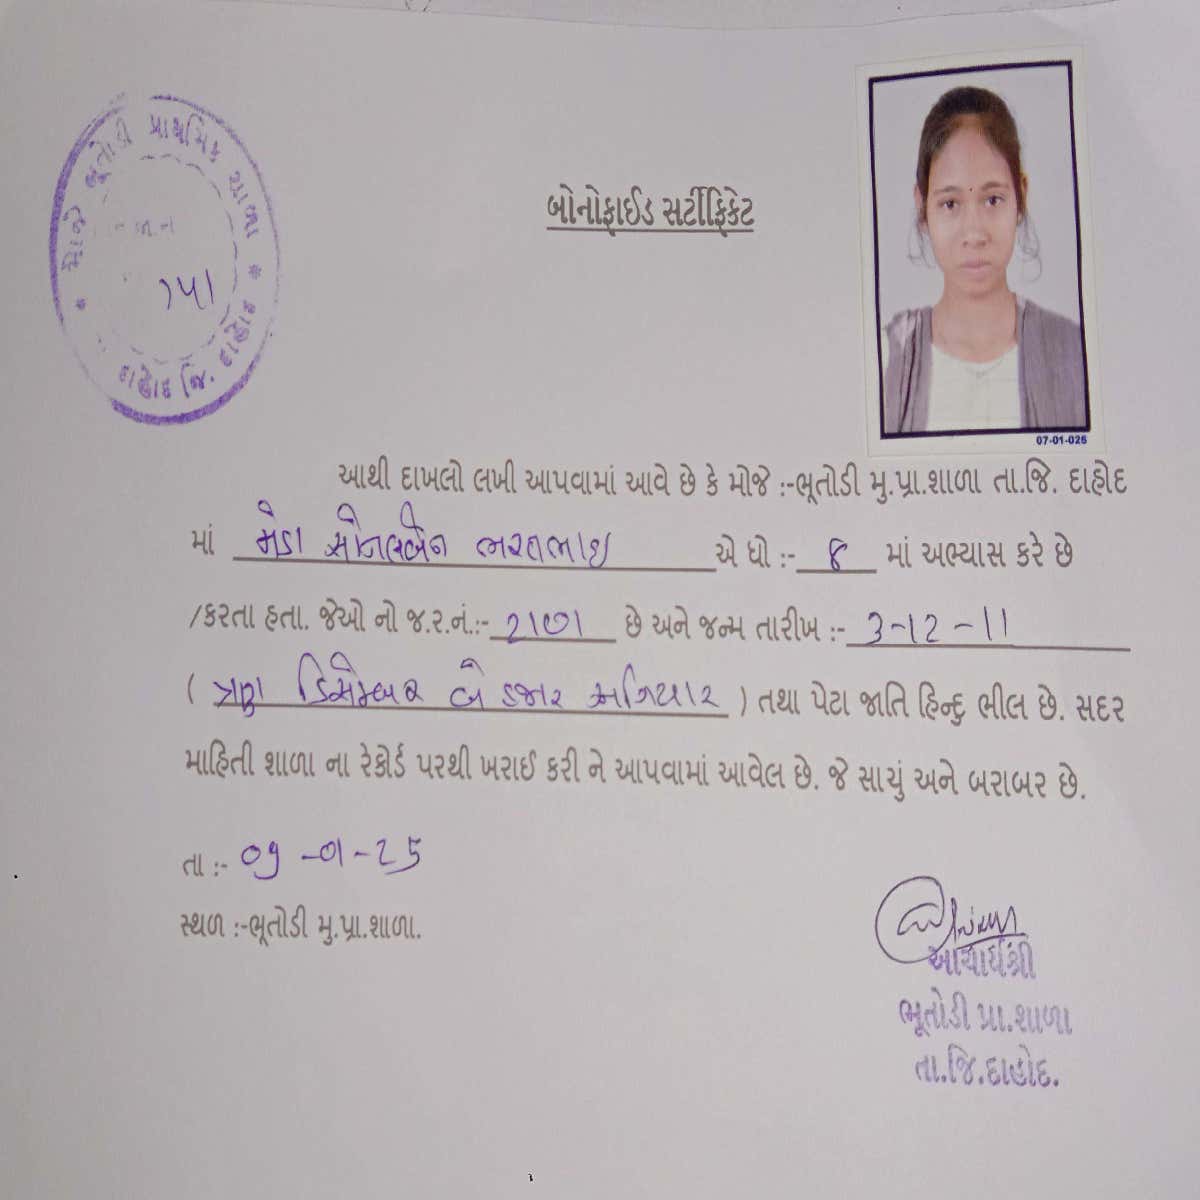 મોજે ભૂતોડી પ્રાથમિક શાળા * દાહોદ જિ. દાહોદ *
બોનોફાઈડ સર્ટીફિકેટ
07-01-025
આથી દાખલો લખી આપવામાં આવે છે કે મોજે :-ભૂતોડી મુ.પ્રા.શાળા તા.જિ. દાહોદ
માં મેડા સોનલબેન ભરતભાઇ એ ધો :- ૪ માં અભ્યાસ કરે છે
/કરતા હતા. જેઓ નો જ.ર.નં.:- છે અને જન્મ તારીખ :- 3-12-11
( ત્રણ ડિસેમ્બર બે હજાર અગિયાર ) તથા પેટા જાતિ હિન્દુ ભીલ છે. સદર
માહિતી શાળા ના રેકોર્ડ પરથી ખરાઈ કરી ને આપવામાં આવેલ છે. જે સાચું અને બરાબર છે.
તા :- 09-01-25
સ્થળ :-ભૂતોડી મુ.પ્રા.શાળા.
આચાર્યશ્રી
ભૂતોડી પ્રા.શાળા
તા.જિ.દાહોદ.